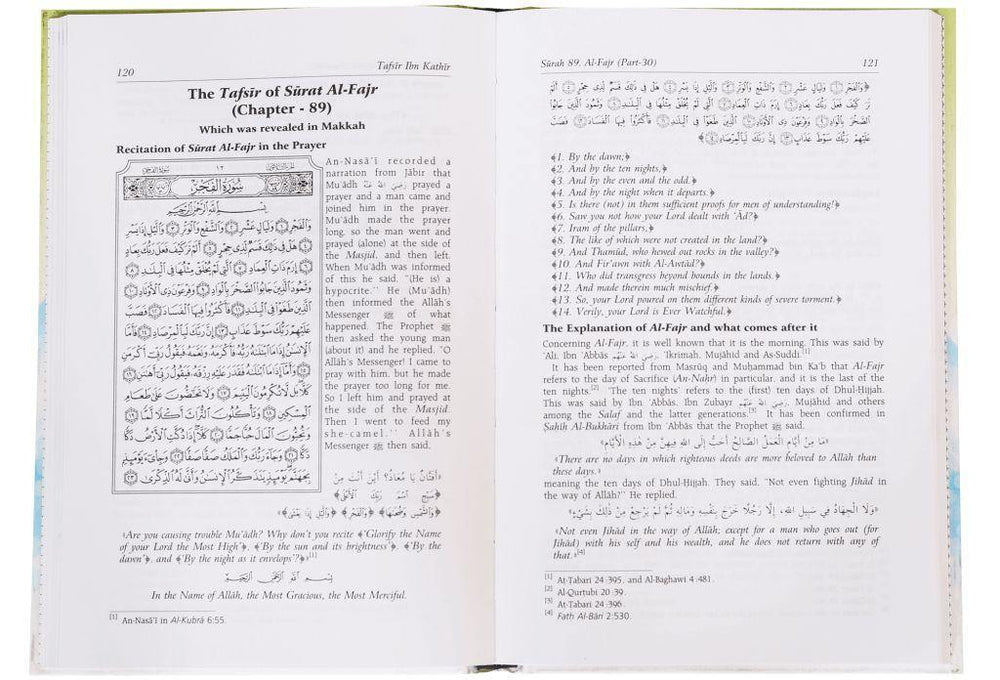 120
Tafsīr Ibn Kathīr
The Tafsīr of Sūrat Al-Fajr
(Chapter - 89)
Which was revealed in Makkah
Recitation of Sūrat Al-Fajr in the Prayer
سُورَةُ الْفَجْرِ
بِسْمِ اللَّهِ الرَّحْمَٰنِ الرَّحِيمِ
وَالْفَجْرِ ﴿١﴾ وَلَيَالٍ عَشْرٍ ﴿٢﴾ وَالشَّفْعِ وَالْوَتْرِ ﴿٣﴾ وَاللَّيْلِ إِذَا يَسْرِ
﴿٤﴾ هَلْ فِي ذَٰلِكَ قَسَمٌ لِّذِي حِجْرٍ ﴿٥﴾ أَلَمْ تَرَ كَيْفَ فَعَلَ رَبُّكَ بِعَادٍ
﴿٦﴾ إِرَمَ ذَاتِ الْعِمَادِ ﴿٧﴾ الَّتِي لَمْ يُخْلَقْ مِثْلُهَا فِي الْبِلَادِ ﴿٨﴾
وَثَمُودَ الَّذِينَ جَابُوا الصَّخْرَ بِالْوَادِ ﴿٩﴾ وَفِرْعَوْنَ ذِي الْأَوْتَادِ ﴿١٠﴾
الَّذِينَ طَغَوْا فِي الْبِلَادِ ﴿١١﴾ فَأَكْثَرُوا فِيهَا الْفَسَادَ ﴿١٢﴾ فَصَبَّ
عَلَيْهِمْ رَبُّكَ سَوْطَ عَذَابٍ ﴿١٣﴾ إِنَّ رَبَّكَ لَبِالْمِرْصَادِ ﴿١٤﴾ فَأَمَّا
الْإِنسَانُ إِذَا مَا ابْتَلَاهُ رَبُّهُ فَأَكْرَمَهُ وَنَعَّمَهُ فَيَقُولُ رَبِّي أَكْرَمَنِ
﴿١٥﴾ وَأَمَّا إِذَا مَا ابْتَلَاهُ فَقَدَرَ عَلَيْهِ رِزْقَهُ فَيَقُولُ رَبِّي أَهَانَنِ ﴿١٦﴾
كَلَّا بَل لَّا تُكْرِمُونَ الْيَتِيمَ ﴿١٧﴾ وَلَا تَحَاضُّونَ عَلَىٰ طَعَامِ
الْمِسْكِينِ ﴿١٨﴾ وَتَأْكُلُونَ التُّرَاثَ أَكْلًا لَّمًّا ﴿١٩﴾
وَتُحِبُّونَ الْمَالَ حُبًّا جَمًّا ﴿٢٠﴾ كَلَّا إِذَا دُكَّتِ الْأَرْضُ دَكًّا
دَكًّا ﴿٢١﴾ وَجَاءَ رَبُّكَ وَالْمَلَكُ صَفًّا صَفًّا ﴿٢٢﴾ وَجِيءَ يَوْمَئِذٍ
بِجَهَنَّمَ يَوْمَئِذٍ يَتَذَكَّرُ الْإِنسَانُ وَأَنَّىٰ لَهُ الذِّكْرَىٰ ﴿٢٣﴾
An-Nasā'ī recorded a
narration from Jābir that
Mu'ādh رضي الله عنه, prayed a
prayer and a man came and
joined him in the prayer.
Mu'ādh made the prayer
long, so the man went and
prayed (alone) at the side of
the Masjid, and then left.
When Mu'ādh was informed
of this he said, "(He is) a
hypocrite." He (Mu'ādh)
then informed the Allāh's
Messenger ﷺ of what
happened. The Prophet ﷺ
then asked the young man
(about it) and he replied, "O
Allāh's Messenger! I came to
pray with him, but he made
the prayer too long for me.
So I left him and prayed at
the side of the Masjid.
Then I went to feed my
she-camel." Allāh's
Messenger ﷺ then said,
«أَفَتَّانٌ يَا مُعَاذُ؟ أَيْنَ أَنْتَ مِنْ
﴿سَبِّحِ اسْمَ رَبِّكَ الْأَعْلَى﴾
﴿وَالشَّمْسِ وَضُحَاهَا﴾ ﴿وَالْفَجْرِ﴾ ﴿وَاللَّيْلِ إِذَا يَغْشَى﴾»
«Are you causing trouble Mu'ādh? Why don't you recite ﴾'Glorify the Name
of your Lord the Most High'﴿, ﴾'By the sun and its brightness'﴿, ﴾'By the
dawn'﴿, and ﴾'By the night as it envelops'?﴿»[1]
بِسْمِ اللَّهِ الرَّحْمَٰنِ الرَّحِيمِ
In the Name of Allāh, the Most Gracious, the Most Merciful.
[1] An-Nasā'ī in Al-Kubrā 6:55.
Sūrah 89. Al-Fajr (Part-30)
121
﴿وَالْفَجْرِ ﴿١﴾ وَلَيَالٍ عَشْرٍ ﴿٢﴾ وَالشَّفْعِ وَالْوَتْرِ ﴿٣﴾ وَاللَّيْلِ إِذَا يَسْرِ ﴿٤﴾ هَلْ فِي ذَٰلِكَ قَسَمٌ لِّذِي حِجْرٍ ﴿٥﴾ أَلَمْ
تَرَ كَيْفَ فَعَلَ رَبُّكَ بِعَادٍ ﴿٦﴾ إِرَمَ ذَاتِ الْعِمَادِ ﴿٧﴾ الَّتِي لَمْ يُخْلَقْ مِثْلُهَا فِي الْبِلَادِ ﴿٨﴾ وَثَمُودَ الَّذِينَ جَابُوا
الصَّخْرَ بِالْوَادِ ﴿٩﴾ وَفِرْعَوْنَ ذِي الْأَوْتَادِ ﴿١٠﴾ الَّذِينَ طَغَوْا فِي الْبِلَادِ ﴿١١﴾ فَأَكْثَرُوا فِيهَا الْفَسَادَ ﴿١٢﴾ فَصَبَّ
عَلَيْهِمْ رَبُّكَ سَوْطَ عَذَابٍ ﴿١٣﴾ إِنَّ رَبَّكَ لَبِالْمِرْصَادِ ﴿١٤﴾﴾
﴾1. By the dawn;﴿
﴾2. And by the ten nights,﴿
﴾3. And by the even and the odd.﴿
﴾4. And by the night when it departs.﴿
﴾5. Is there (not) in them sufficient proofs for men of understanding!﴿
﴾6. Saw you not how your Lord dealt with 'Ād?﴿
﴾7. Iram of the pillars,﴿
﴾8. The like of which were not created in the land?﴿
﴾9. And Thamūd, who hewed out rocks in the valley?﴿
﴾10. And Fir'awn with Al-Awtād?﴿
﴾11. Who did transgress beyond bounds in the lands.﴿
﴾12. And made therein much mischief.﴿
﴾13. So, your Lord poured on them different kinds of severe torment.﴿
﴾14. Verily, your Lord is Ever Watchful.﴿
The Explanation of Al-Fajr and what comes after it
Concerning Al-Fajr, it is well known that it is the morning. This was said by
'Ali, Ibn 'Abbās رضي الله عنهم, 'Ikrimah, Mujāhid and As-Suddi.[1]
It has been reported from Masrūq and Muḥammad bin Ka'b that Al-Fajr
refers to the day of Sacrifice (An-Nahr) in particular, and it is the last of the
ten nights.[2] 'The ten nights' refers to the (first) ten days of Dhul-Hijjah.
This was said by Ibn 'Abbās, Ibn Zubayr رضي الله عنهم, Mujāhid and others
among the Salaf and the latter generations.[3] It has been confirmed in
Ṣaḥīḥ Al-Bukhāri from Ibn 'Abbās that the Prophet ﷺ said,
«مَا مِنْ أَيَّامٍ الْعَمَلُ الصَّالِحُ أَحَبُّ إِلَى اللهِ فِيهِنَّ مِنْ هَذِهِ الْأَيَّامِ»
«There are no days in which righteous deeds are more beloved to Allāh than
these days.»
meaning the ten days of Dhul-Hijjah. They said, "Not even fighting Jihād in
the way of Allāh?" He replied,
«وَلَا الْجِهَادُ فِي سَبِيلِ اللهِ، إِلَّا رَجُلًا خَرَجَ بِنَفْسِهِ وَمَالِهِ ثُمَّ لَمْ يَرْجِعْ مِنْ ذَلِكَ بِشَيْءٍ»
«Not even Jihād in the way of Allāh; except for a man who goes out (for
Jihād) with his self and his wealth, and he does not return with any of
that.»[4]
[1] At-Tabari 24:395, and Al-Baghawi 4:481.
[2] Al-Qurtubi 20:39.
[3] At-Tabari 24:396.
[4] Fath Al-Bāri 2:530.